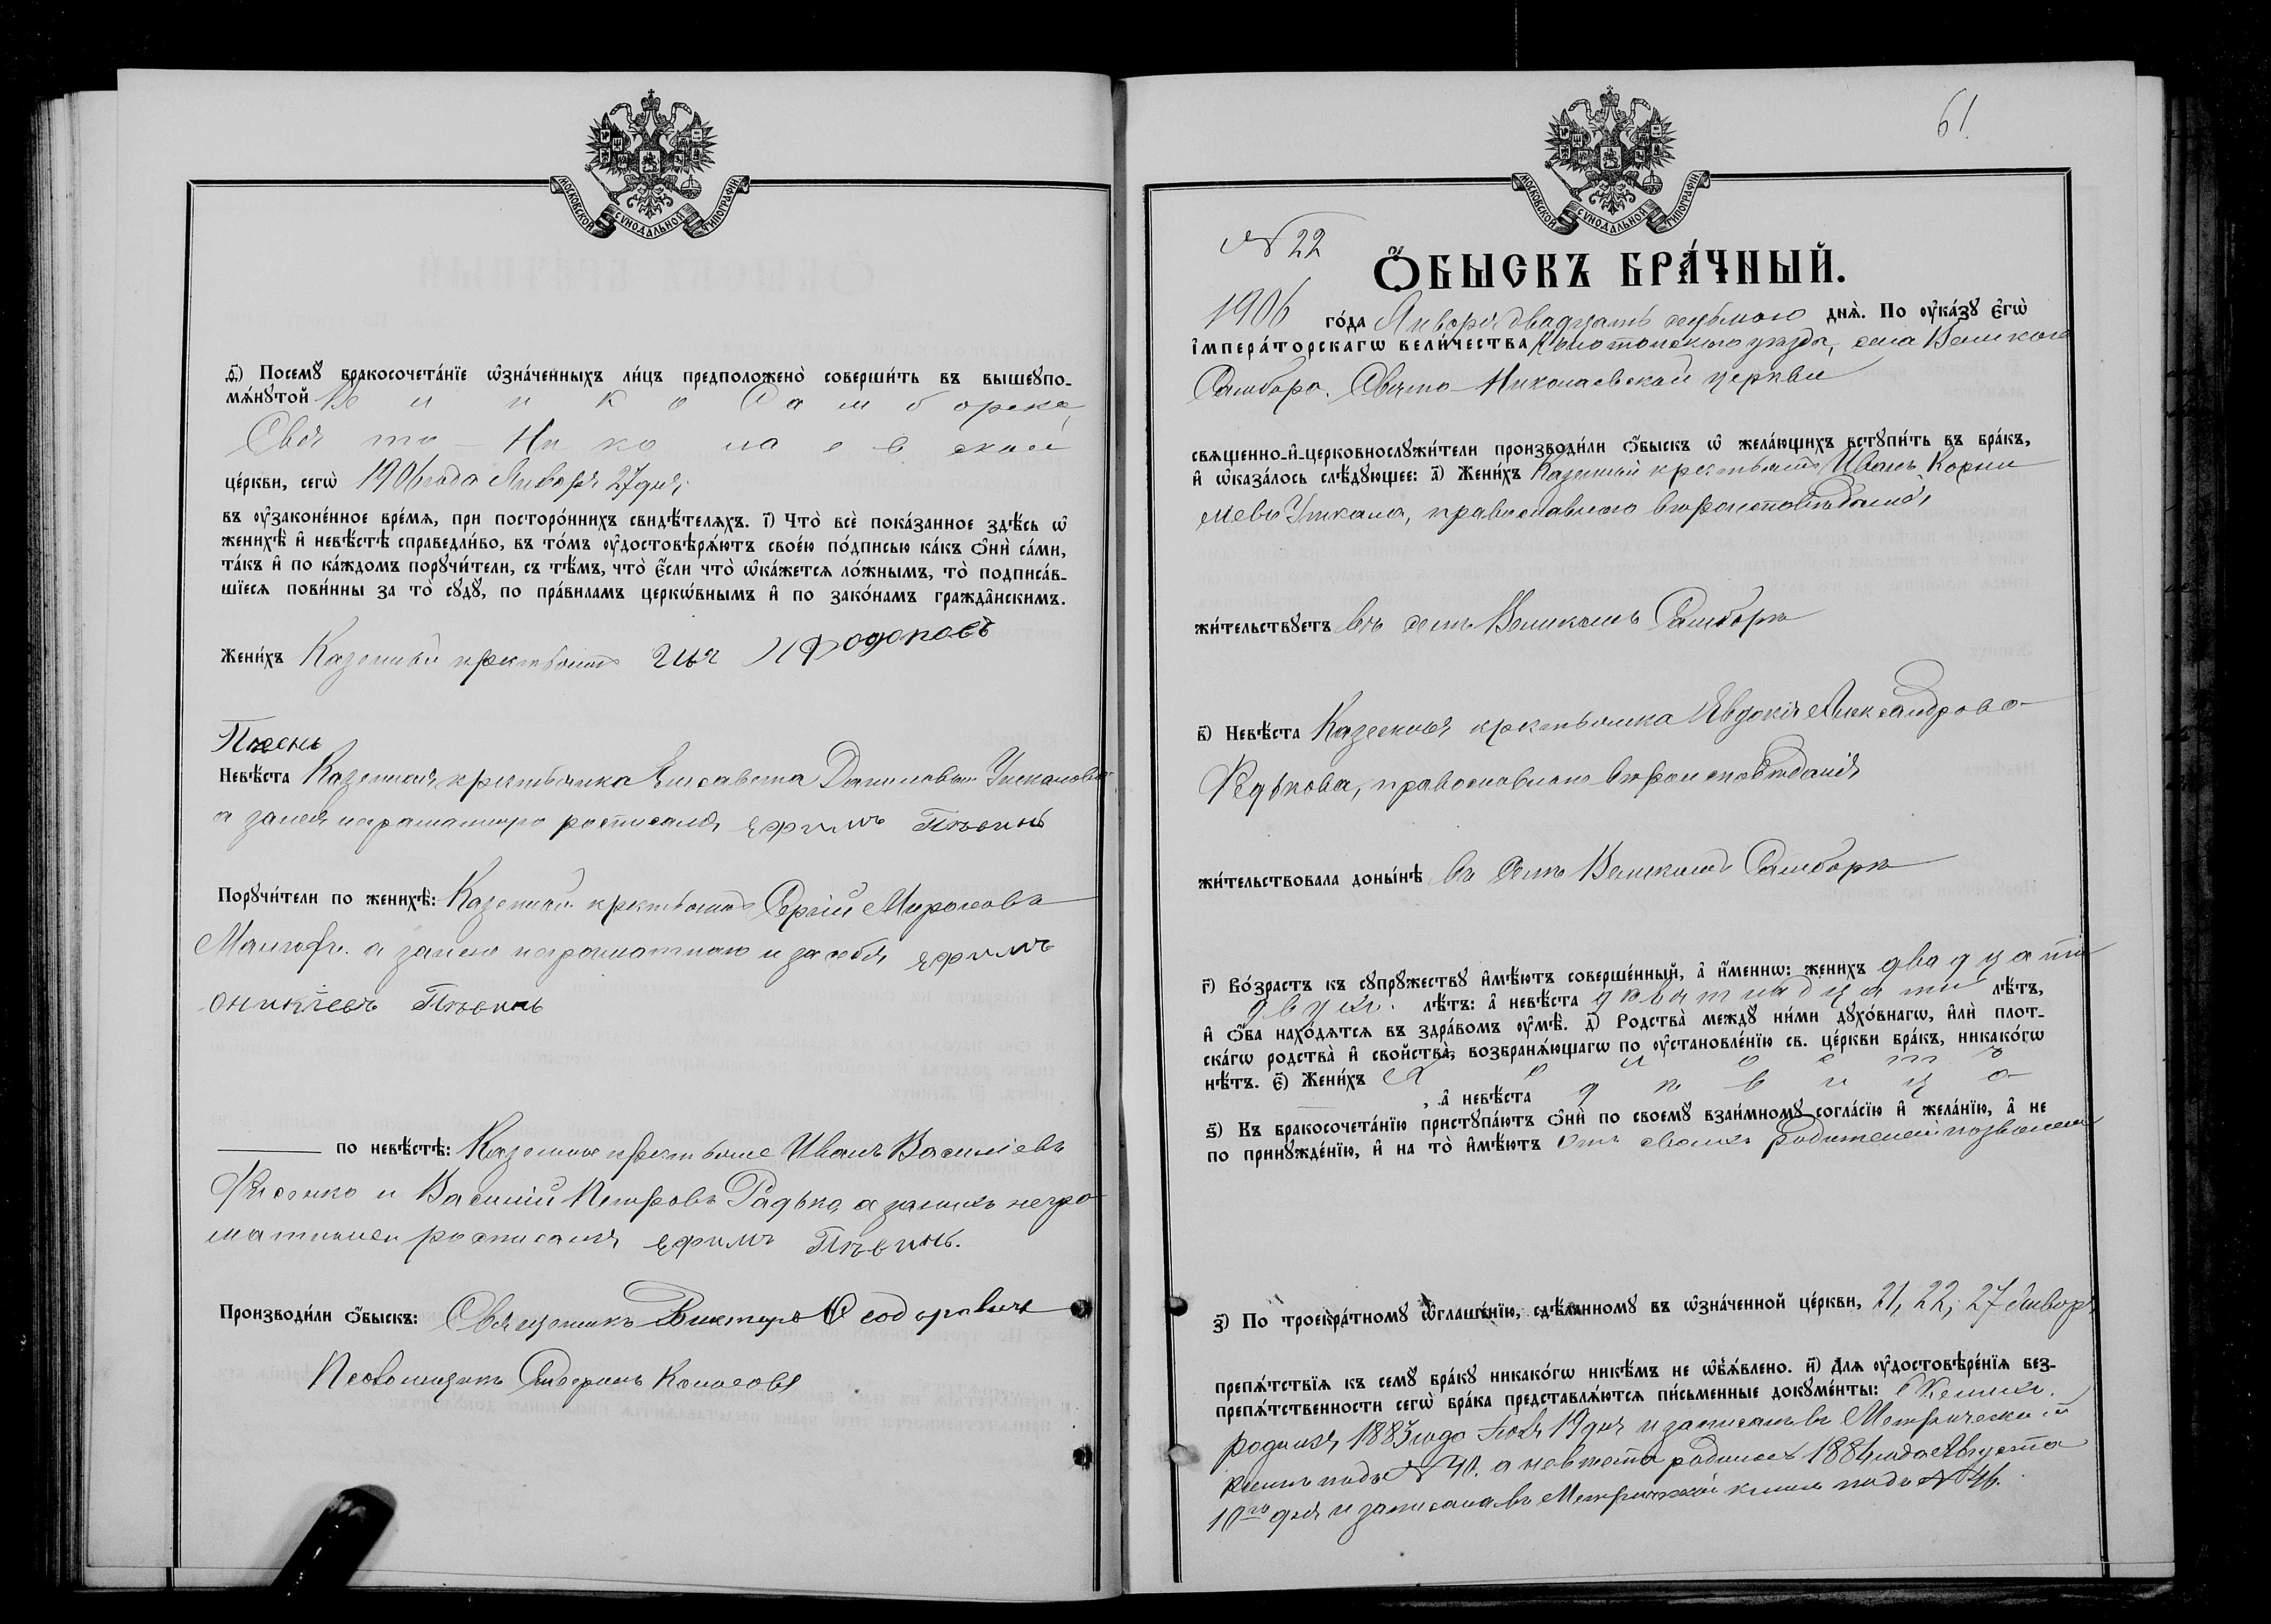 МОСКОВСКОЙ СѴНОДАЛЬНОЙ ТИПОГРАФІИ
ѳ҃) Посемꙋ̀ бракосочета́нїе ѡ҆зна́ченныхъ ли́цъ предположено̀ соверши́ть въ вышеꙋпо-
мѧ́нꙋтой Велико Самборской,
Свято-Николаевской
це́ркви, сегѡ̀ 1906 года Января 27 дня,
въ ᲂу҆законе́нное вре́мѧ, при посторо́ннихъ свидѣ́телѧхъ. і҃) Что̀ всѐ пока́занное здѣ́сь ѡ҆
женихѣ̀ и҆ невѣ́стѣ справедли́во, въ то́мъ ᲂу҆достовѣрѧ́ютъ свое́ю по́дписью ка́къ ѻ҆нѝ са́ми,
та́къ и҆ по ка́ждомъ порꙋчи́тели, съ тѣ́мъ, что̀ є҆́сли что̀ ѡ҆ка́жетсѧ ло́жнымъ, то̀ подписа́в-
шїесѧ пови́нны за то̀ сꙋдꙋ̀, по пра́виламъ церкѡ́внымъ и҆ по зако́намъ гражда̑нскимъ.
Жени́хъ Казенный крестьянинъ
Невѣ́ста Казенная крестьянка Елисавета Данилова
а за нея неграмотную росписался Ефимъ
Порꙋчи́тели по женихѣ̀: Казенный крестьянинъ Сергій Мироновъ
а за него неграмотнаго и за себя Ефимъ
Оникіевъ
по невѣ́стѣ: Казенные крестьяне Иванъ Васильевъ
и Василій Петровъ Радько, а за нихъ негра-
мотныхъ росписался Ефимъ
Производи́ли ѻ҆́быскъ: Священникъ Викторъ Ѳеодоровичъ
Псаломщикъ
61.
МОСКОВСКОЙ СѴНОДАЛЬНОЙ ТИПОГРАФІИ
№ 22
Ѻ҆́БЫСКЪ БРА́ЧНЫЙ.
1906 го́да Января двадцать седьмого днѧ̀. По ᲂу҆ка́зꙋ Є҆гѡ̀
І҆мпера́торскагѡ вели́чества Конотопскаго уѣзда, села Великаго
Самбора. Свято-Николаевской церкви
свѧщенно-и҆-церковнослꙋжи́тели производи́ли ѻ҆́быскъ ѡ҆ жела́ющихъ встꙋпи́ть въ бра́къ,
и҆ ѡ҆каза́лось слѣ́дꙋющее: а҃) Жени́хъ Казенный крестьянинъ Иванъ Корни-
лиевъ Ушкало, православнаго вѣроисповѣданія,
жи́тельствꙋетъ въ селѣ Великомъ Самборѣ
в҃) Невѣ́ста Казенная крестьянка Евдокія Александрова
Редькова, православнаго вѣроисповѣданія
жи́тельствовала доны́нѣ въ селѣ Великомъ Самборѣ
г҃) Во́зрастъ къ сꙋпрꙋ́жествꙋ и҆мѣ́ютъ соверше́нный, а҆ и҆́менно: жени́хъ двадцати
двухъ. лѣ́тъ: а҆ невѣ́ста девятнадцати лѣ́тъ,
и҆ ѻ҆́ба нахо́дѧтсѧ въ здра́вомъ ᲂу҆мѣ̀. д҃) Родства̀ междꙋ̀ ни́ми дꙋхо́внагѡ, и҆лѝ плот-
ска́гѡ родства̀ и҆ сво́йства, возбранѧ́ющагѡ по ᲂу҆становле́нїю св. це́ркви бра́къ, никако́гѡ
нѣ́тъ. є҃) Жени́хъ холостъ
, а҆ невѣ́ста дѣвица
ѕ҃) Къ бракосочета́нїю пристꙋпа́ютъ ѻ҆нѝ по своемꙋ̀ взаи́мномꙋ согла́сїю и҆ жела́нїю, а҆ не
по принꙋжде́нїю, и҆ на то̀ и҆мѣ́ютъ отъ своихъ родителей позволеніе
з҃) По троекра́тномꙋ ѡ҆глаше́нїю, сдѣ́ланномꙋ въ ѡ҆зна́ченной це́ркви, 21, 22, 27 Января
препѧ́тствїѧ къ семꙋ̀ бра́кꙋ никако́гѡ никѣ́мъ не ѡ҆б̾ѧ́влено. и҃) Длѧ ᲂу҆достовѣре́нїѧ без-
препѧ́тственности сегѡ̀ бра́ка представлѧ́ютсѧ пи́сьменные докꙋме́нты: Женихъ.
родился 1883 года 19 дня и записанъ въ Метрической
книгѣ подъ № 40. а невѣста родилась 1886 года Августа
10го дня и записана въ Метрической книгѣ подъ № 46.